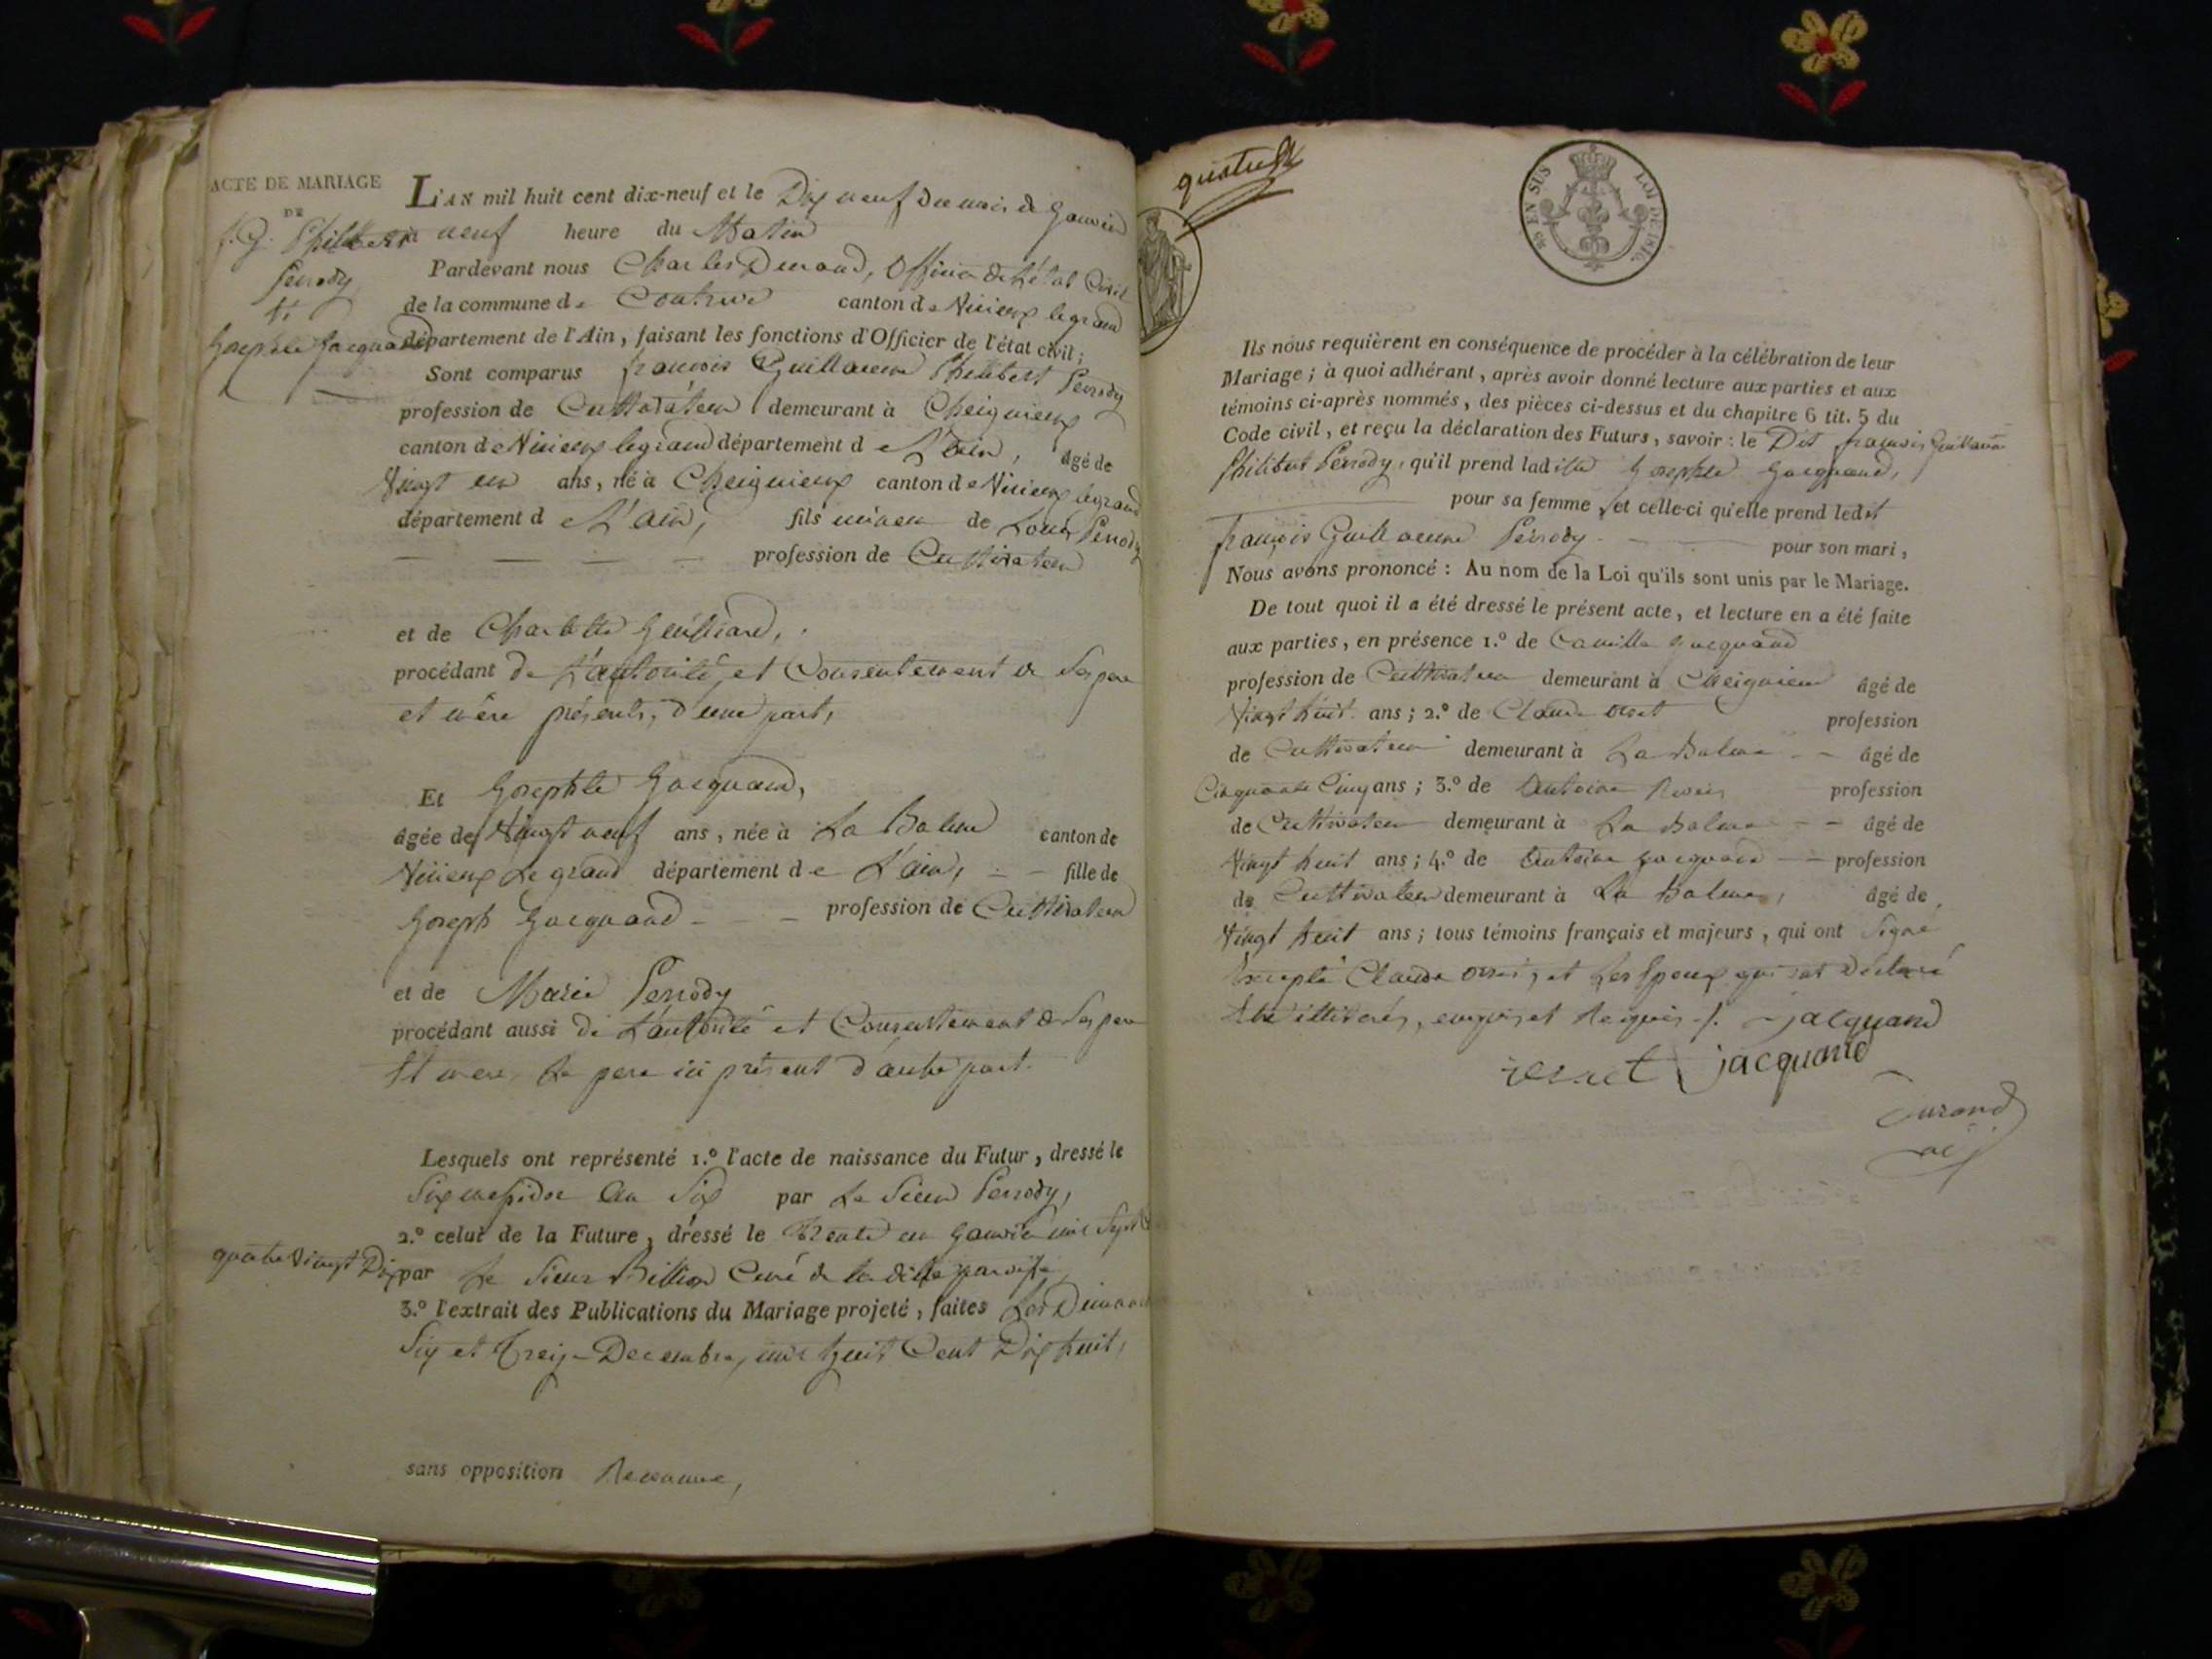 ACTE DE MARIAGE
DE
f. G. Philibert
Perrody
et
Josephte Jacquand
L'AN mil huit cent dix-neuf et le Dix neuf du mois de Janvier
à neuf heure du Matin
Pardevant nous Charles Durand, Officier de L'état Civil
de la commune de Contrevoz canton de Virieux le grand
département de l'Ain, faisant les fonctions d'Officier de l'état civil;
Sont comparus francois Guillaume Philibert Perrody
profession de Cultivateur demeurant à Cheignieux
canton de Virieux le grand département de L'ain, âgé de
Vingt un ans, né à Cheignieux canton de Virieux le grand
département de L'ain, fils mineur de Louis Perrody
profession de Cultivateur
et de Charlotte
procédant de L'autorité et Consentement de Ses pere
et mère présents, d'une part,
Et Josephte Jacquand,
âgée de Vingt neuf ans, née à La Balme canton de
Virieux Le grand département de L'ain, fille de
Joseph Jacquand profession de Cultivateur
et de Marie Perrody
procédant aussi de L'autorité et Consentement de Ses pere
Et mere, Le pere ici présent d'autre part.
Lesquels ont représenté 1.º l'acte de naissance du Futur, dressé le
Six messidor an Six par Le Sieur Perrody,
2.º celui de la Future, dressé le Trente un Janvier mil Sept Cent
quatre Vingt Dix par Le Sieur Billion Curé de la ditte paroisse
3.º l'extrait des Publications du Mariage projeté, faites Les Dimanches
Six et Treize Decembre, mil huit Cent Dix huit,
sans opposition Reconnue,
quatre
EN SUS
LOI DE 1816.
Ils nous requièrent en conséquence de procéder à la célébration de leur
Mariage; à quoi adhérant, après avoir donné lecture aux parties et aux
témoins ci-après nommés, des pièces ci-dessus et du chapitre 6 tit. 5 du
Code civil, et reçu la déclaration des Futurs, savoir: le Dit francois Guillaume
Philibert Perrody, qu'il prend ladite Josephte Jacquand,
pour sa femme, et celle-ci qu'elle prend ledit
françois Guillaume Perrody pour son mari,
Nous avons prononcé: Au nom de la Loi qu'ils sont unis par le Mariage.
De tout quoi il a été dressé le présent acte, et lecture en a été faite
aux parties, en présence 1.º de Camille Jacquand
profession de Cultivateur demeurant à Cheignieu âgé de
Vingt huit ans; 2.º de Claude profession
de Cultivateur demeurant à La Balme âgé de
Cinquante Cinq ans; 3.º de Antoine profession
de Cultivateur demeurant à La Balme âgé de
Vingt huit ans; 4.º de Antoine Jacquand profession
de Cultivateur demeurant à La Balme, âgé de
Vingt huit ans; tous témoins français et majeurs, qui ont Signé
Excepté Claude et Les Epoux qui ont Déclaré
Etre illitérés, enquis et Requis ./. jacquand
jacquand
Durand